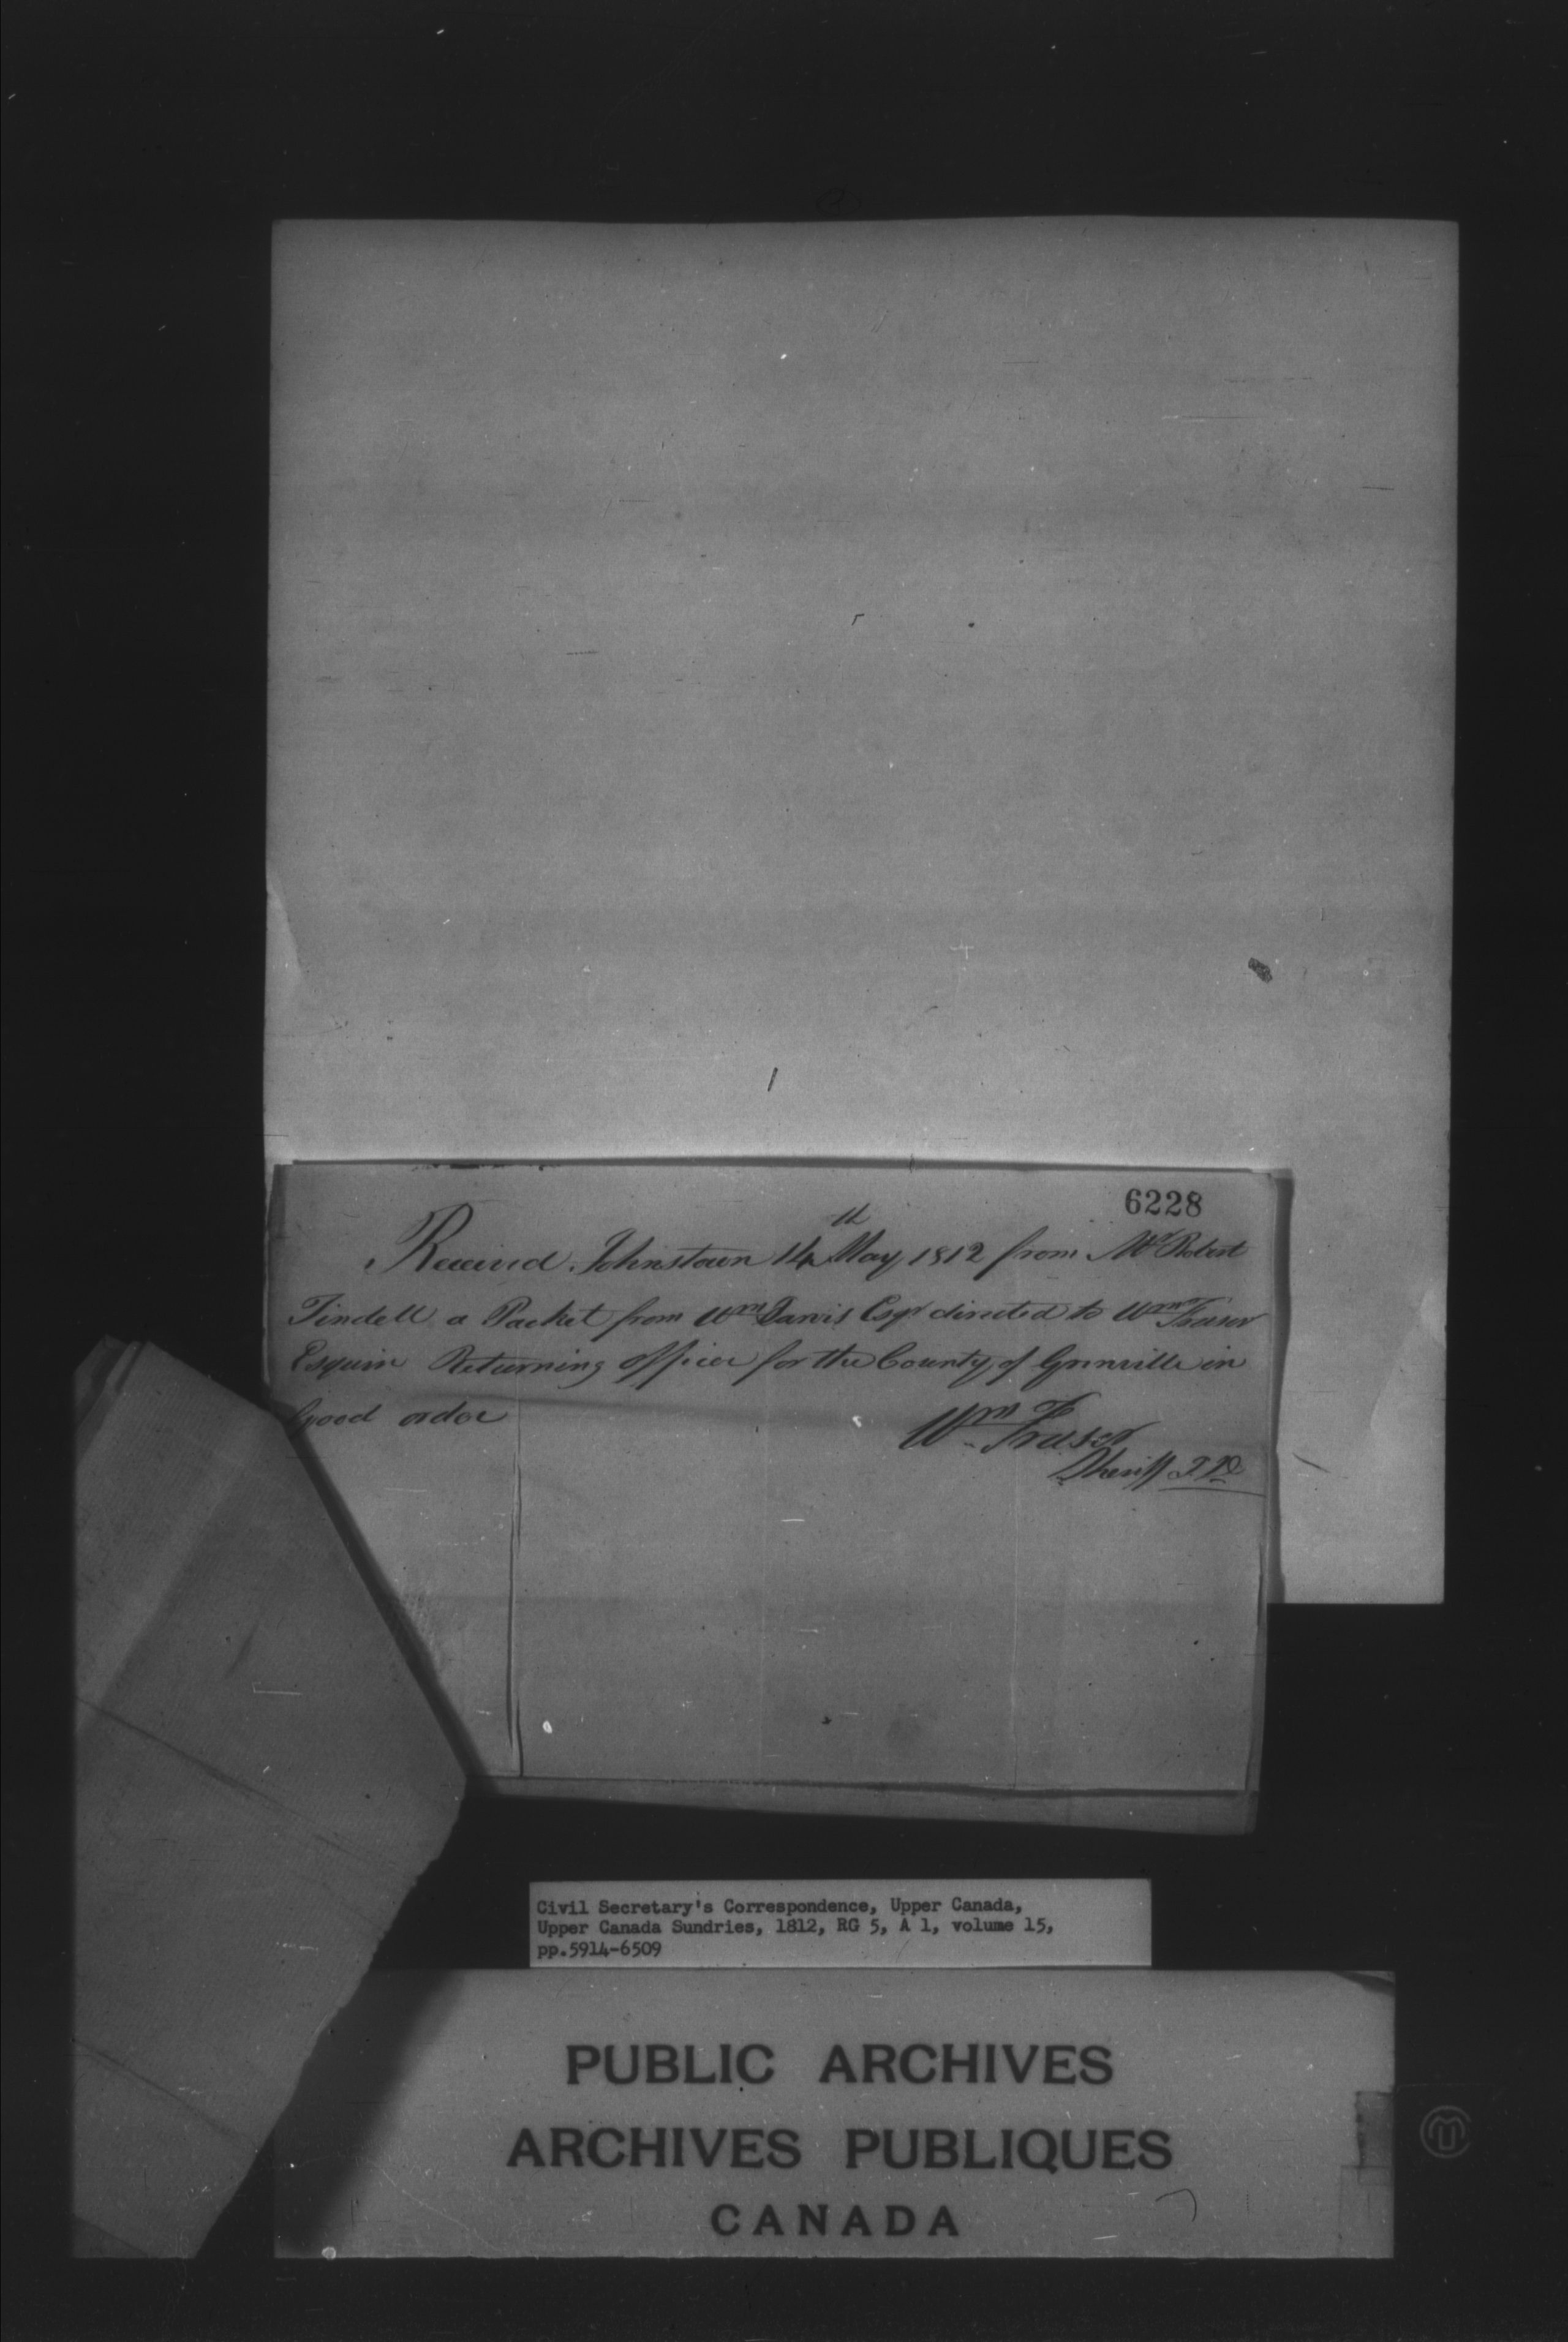 6228
Received Johnstown 14th May 1812 from Mr Robert
Tindell a Packet from Wm Jarvis Esqr directed to Wm Fraser
Esquire Returning officer for the County of Grenville in
Good order
Wm Fraser
Sheriff J.D
Civil Secretary's Correspondence, Upper Canada,
Upper Canada Sundries, 1812, RG 5, A 1, volume 15,
pp.5914-6509
PUBLIC ARCHIVES
ARCHIVES PUBLIQUES
CANADA